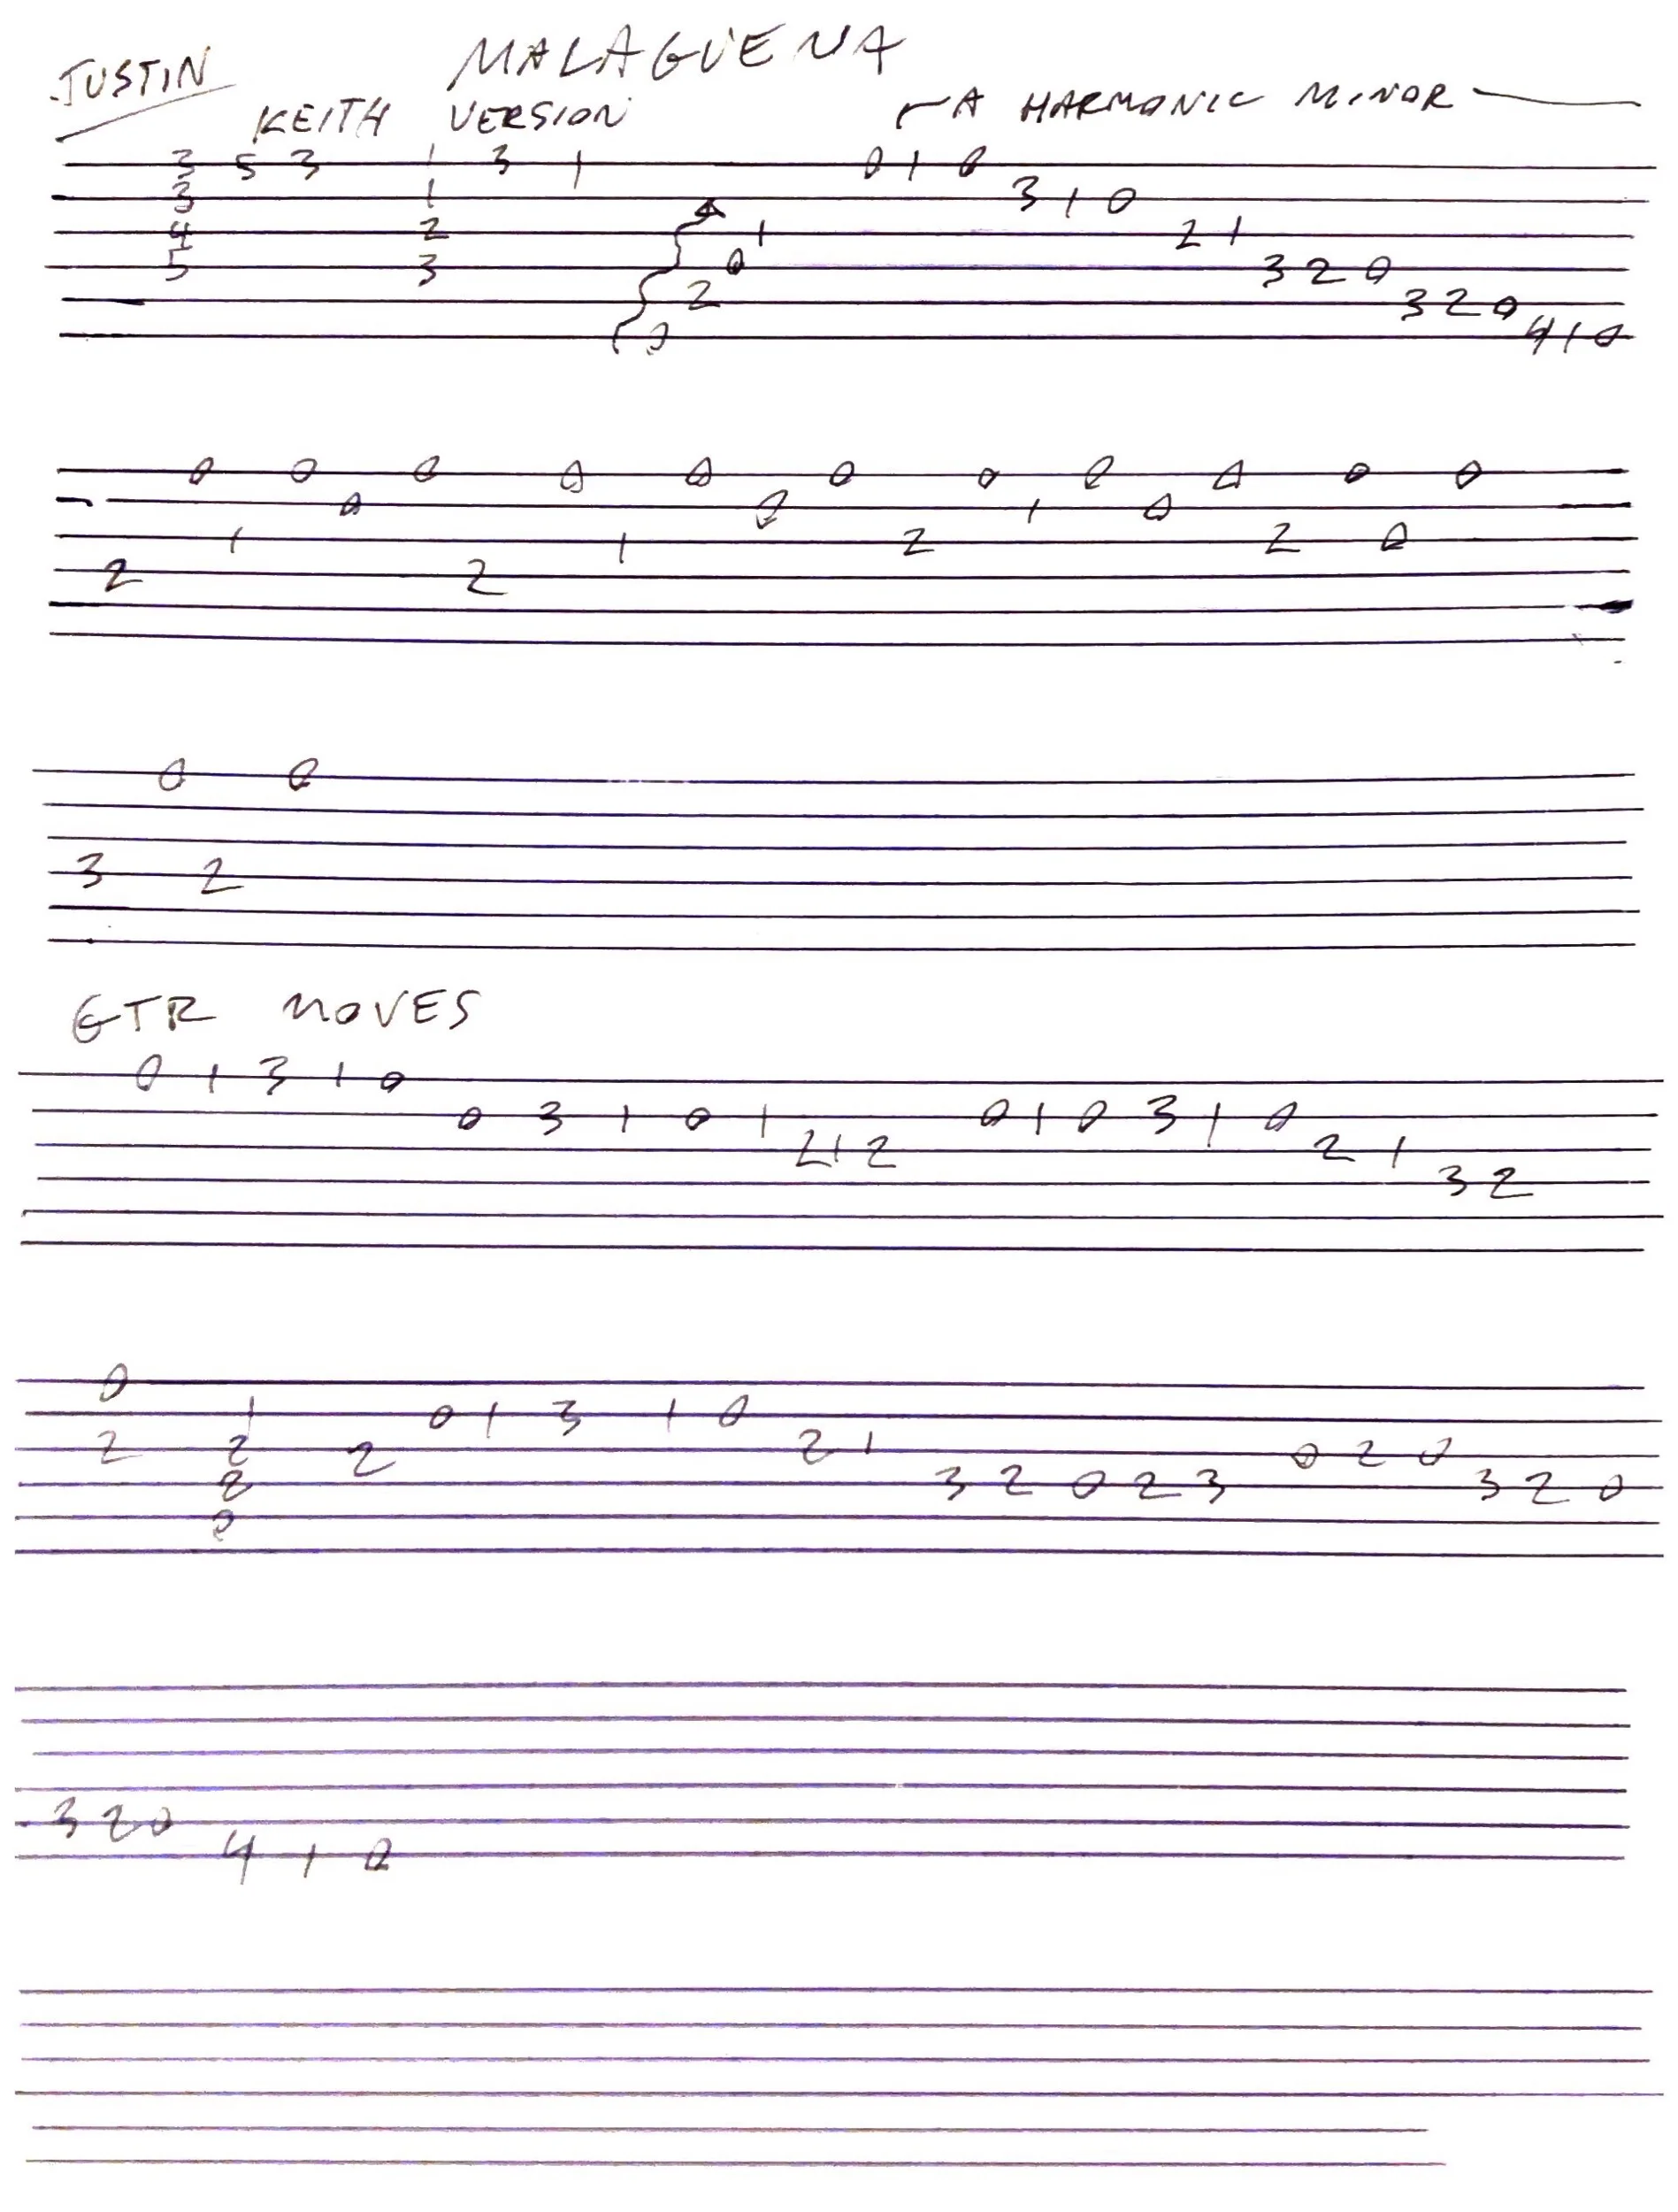 MALAGUENA
JUSTIN
KEITH VERSION
A HARMONIC MINOR
3 5 3 1 3 1 0 1 0
3 1 3 1 0
4 2 1 2 1
5 3 0 3 2 0
2 3 2 0
0 4 1 0
0 0 0 0 0 0 0 0 0 0 0
0 0 1 0
1 1 2 2 0
2 2
0 0
3 2
GTR MOVES
0 1 3 1 0
0 3 1 0 1 0 1 0 3 1 0
2 1 2 2 1
3 2
0
1 0 1 3 1 0
2 2 2 2 1 0 2 0
2 3 2 0 2 3 3 2 0
0
3 2 0
4 1 0